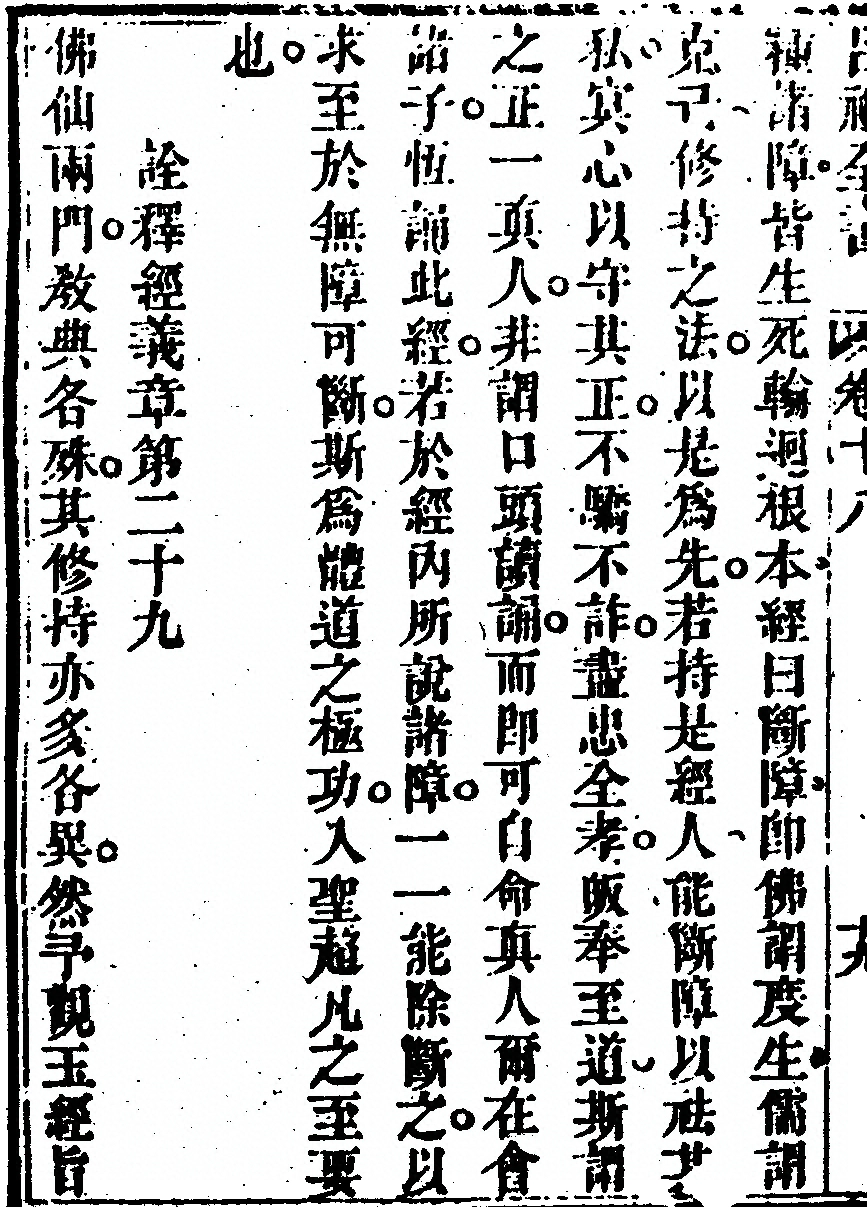 呂祖全書 卷十八 九
種諸障皆生死輪迴根本經曰斷障即佛謂度生儒謂
克己修持之法以是為先若持是經人能斷障以祛其
私寘心以守其正不驕不詐盡忠全孝皈奉至道斯謂
之正一真人非謂口頭讀誦而即可自命真人爾在會
諸子恆誦此經若於經內所說諸障一一能除斷之以
求至於無障可斷斯為體道之極功入聖超凡之至要
也
詮釋經義章第二十九
佛仙兩門教典各殊其修持亦多各異然予觀玉經旨